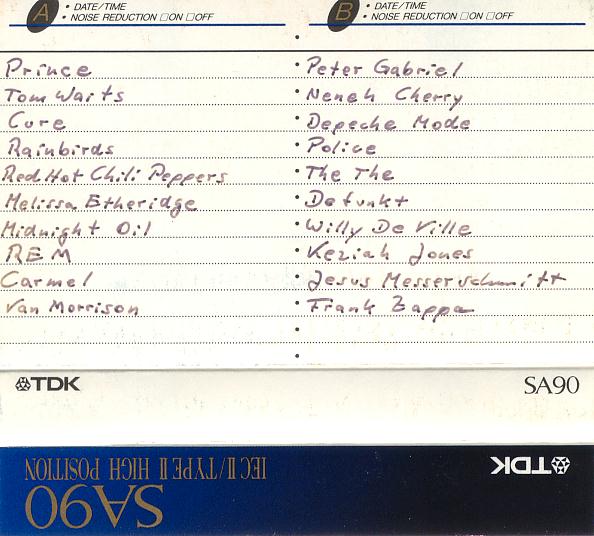 A • DATE/TIME
• NOISE REDUCTION □ON □OFF
B • DATE/TIME
• NOISE REDUCTION □ON □OFF
Prince
Tom Waits
Cure
Rainbirds
Red Hot Chili Peppers
Melissa Etheridge
Midnight Oil
REM
Carmel
Van Morrison
• Peter Gabriel
• Neneh Cherry
• Depeche Mode
• Police
• The The
• Defunkt
• Willy De Ville
• Keziah Jones
• Jesus Messerschmitt
• Frank Zappa
TDK
SA90
TDK
IEC II/TYPE II HIGH POSITION
SA90